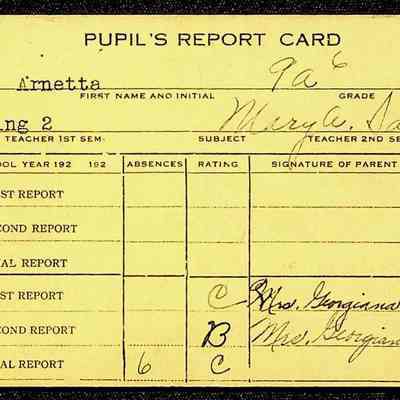 PUPIL'S REPORT CARD
Arnetta 9a6
FIRST NAME AND INITIAL GRADE
ng 2 Mary A. Sa
TEACHER 1ST SEM. SUBJECT TEACHER 2ND SE
OOL YEAR 192 192 ABSENCES RATING SIGNATURE OF PARENT
ST REPORT
COND REPORT
AL REPORT
ST REPORT C Mrs. Georgiana
COND REPORT B Mrs. Georgian
AL REPORT 6 C